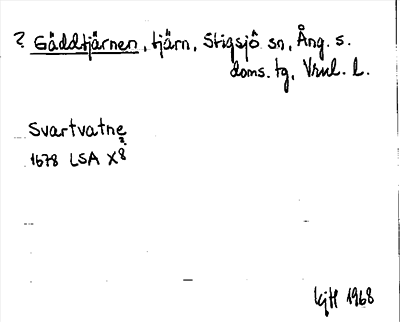 ? Gäddtjärnen, tjärn, Stigsjö sn, Ång. s.
doms. tg, Vrnl. l.
Svartvatne
1678 LSA X 8 2
KjH 1968